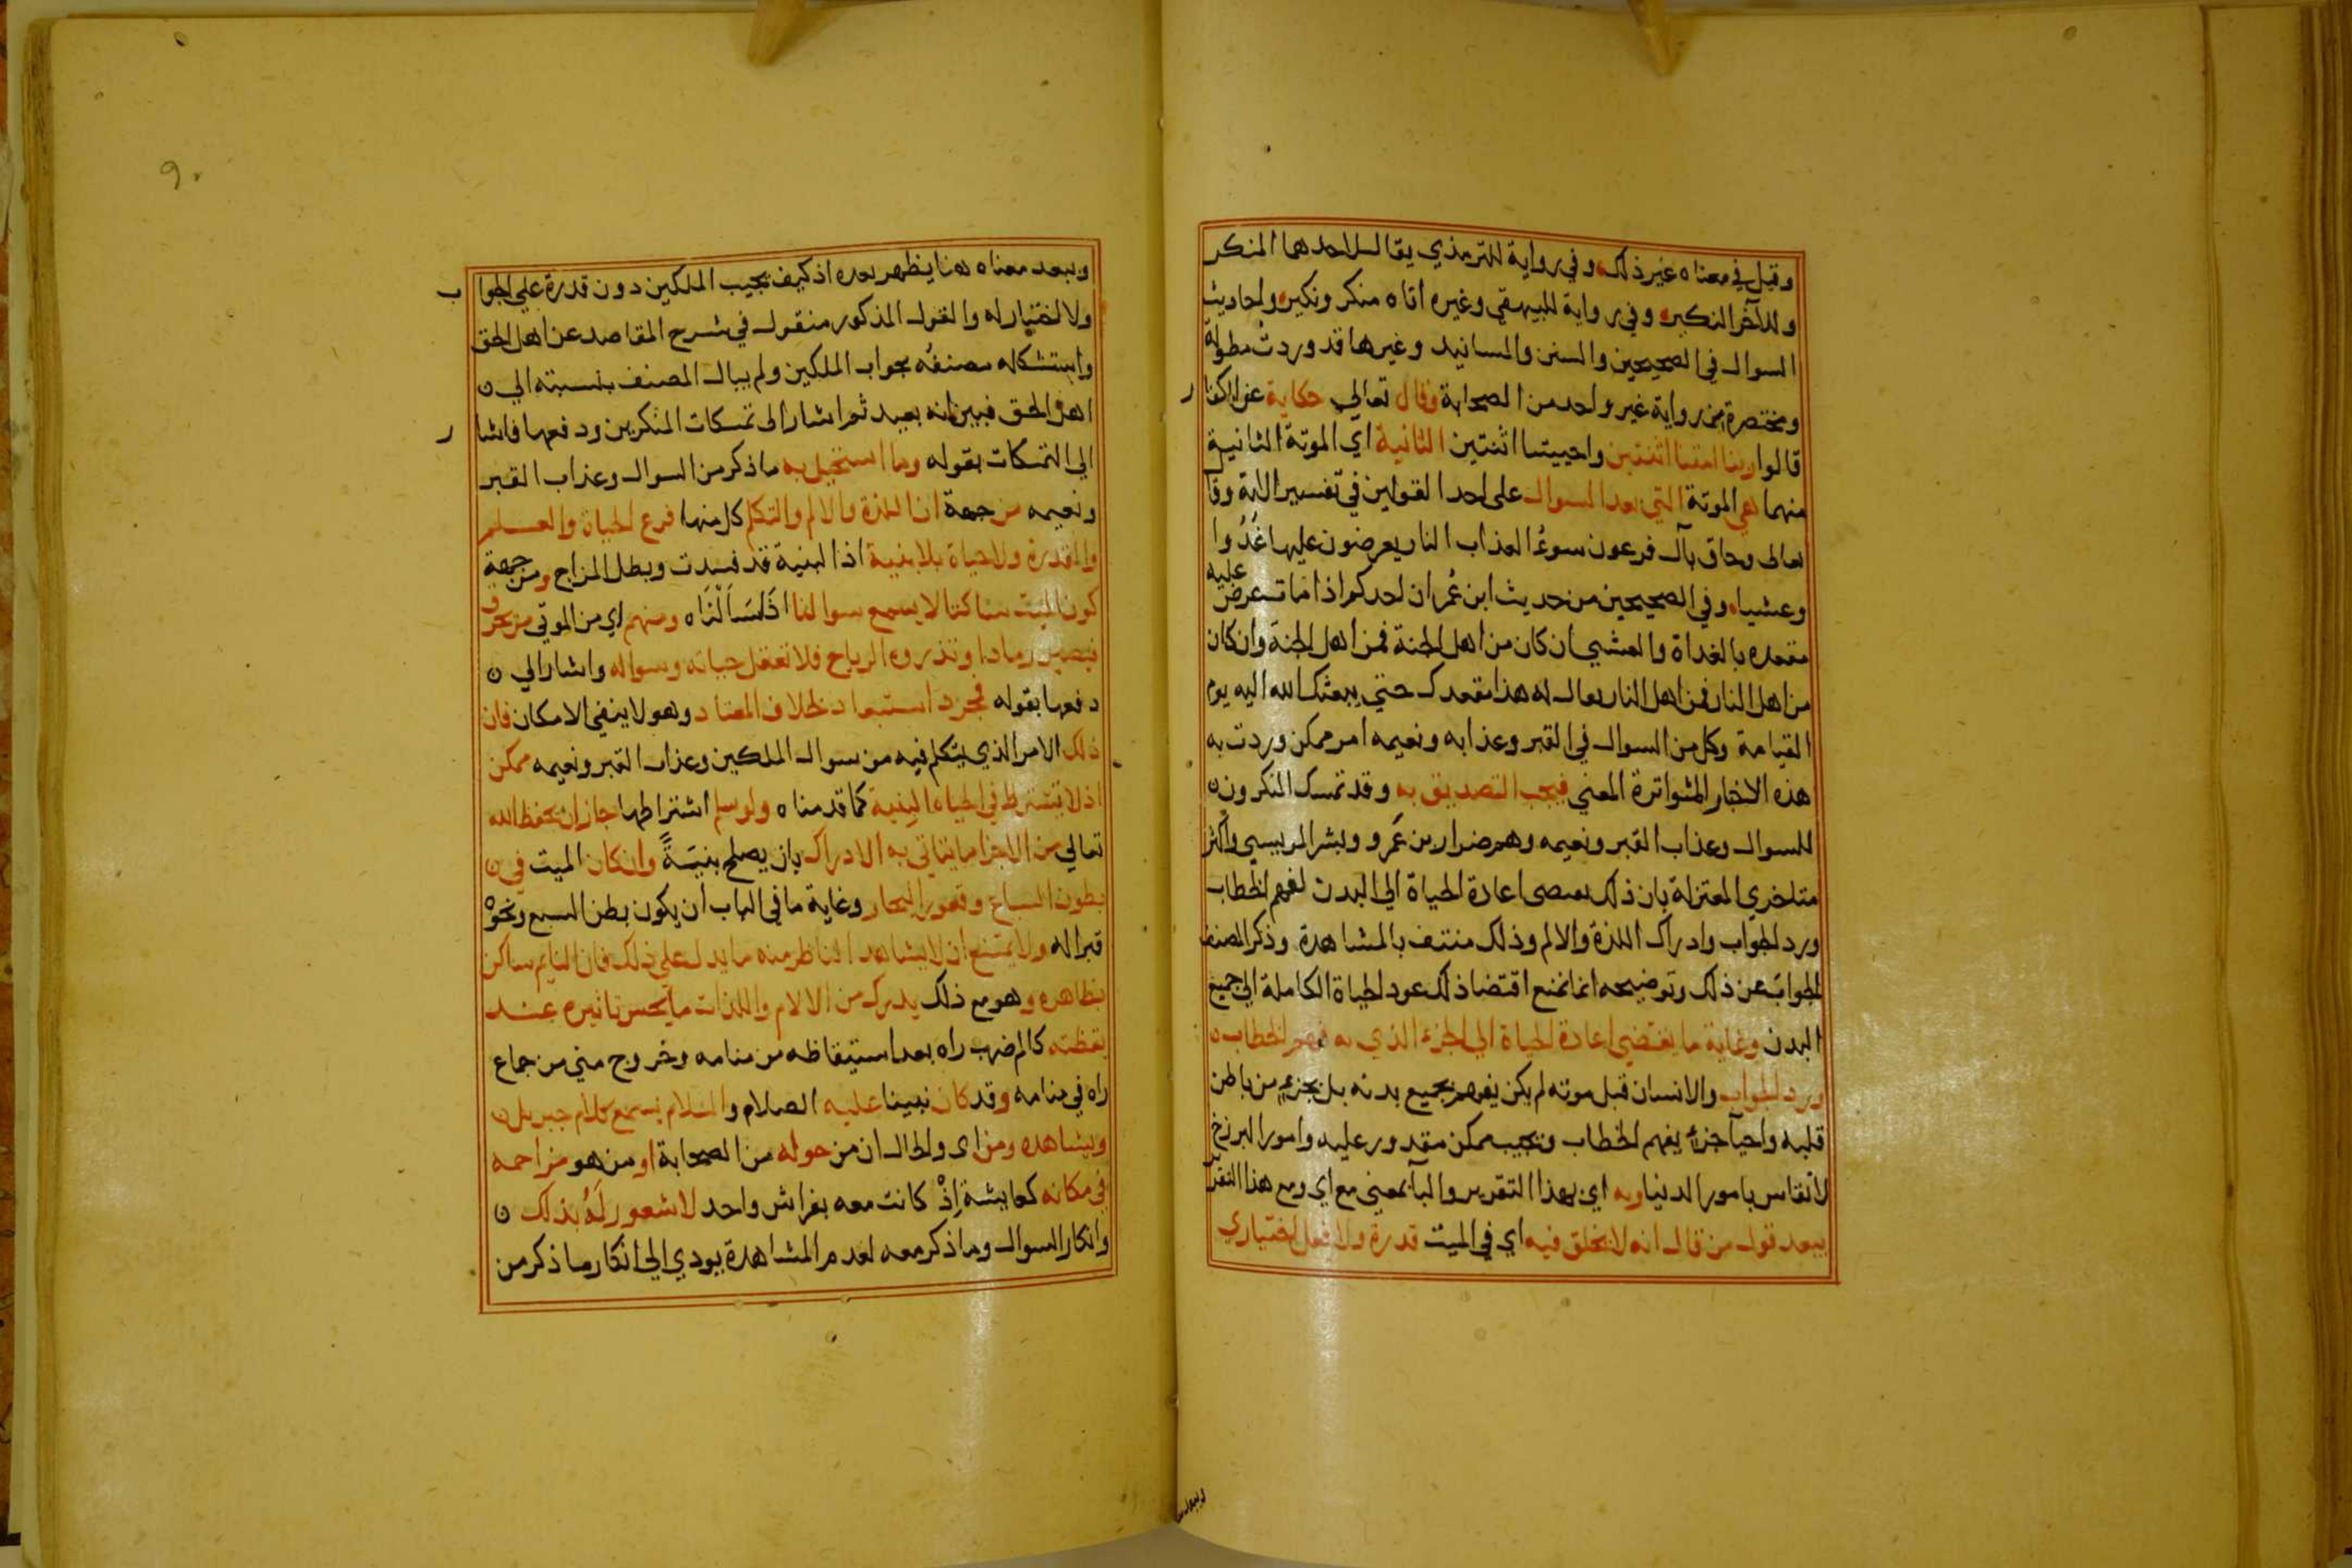 وقيل في معناه غير ذلك وفي رواية للترمذي يقال لاحدهما المنكر
وللآخر النكير وفي رواية للبيهقي وغيره اتاه منكر ونكير واحاديث
السوال في الصحيحين والسنن والمسانيد وغيرها قد وردت مطولة
ومختصرة من رواية غير واحد من الصحابة وقال تعالي حكاية عن الكفا
ر
قالوا ربنا امتنا اثنتين واحييتنا اثنتين الثانية اي الموتة الثانية
منهما هي الموتة التي بعد السوال على احد القولين في تفسير الاية وقا
تعالى وحاق بآل فرعون سوءُ العذاب النار يعرضون عليها غُدُوا
وعشيا وفي الصحيحين من حديث ابن عُمر ان احدكم اذا مات عرض عليه
مقعده بالغداة والعشي ان كان من اهل الجنة فمن اهل الجنة وان كان
من اهل النار فمن اهل النار يقال له هذا مقعدك حتي يبعثك الله اليه يوم
القيامة وكل من السوال في القبر وعذابه ونعيمه امر ممكن وردت به
هذه الاخبار المتواترة المعني فيجب التصديق به وقد تمسك المنكرون
للسوال وعذاب القبر ونعيمه وهم ضرار بن عَمرو وبشر المريسي واكثر
متاخري المعتزلة بان ذلك يقتضى اعادة الحياة الي البدن لفهم الخطاب
ورد الجواب وادراك اللذة والالم وذلك منتف بالمشاهدة وذكر المصنف
الجواب عن ذلك وتوضيحه انما نمنع اقتضا ذلك عود الحياة الكاملة الي جميع
البدن وغاية ما يقتضي اعادة الحياة الي الجزء الذي به فهم الخطاب
ورد الجواب والانسان قبل موته لم يكن يفهم بجميع بدنه بل بجزءٍ من باطن
قلبه واحيآ جزء يفهم الخطاب ويجيب ممكن مقدور عليه وامور البرزخ
لا تقاس بامور الدنيا وبه اي بهذا التقرير والبآ بمعني مع اي ومع هذا التقر
يبعد قول من قال انه لا يخلق فيه اي في الميت قدرة ولا فعل اختياري
ويبعد
٩٠
ويبعد معناه هنا يظهر بعده اذ كيف يجيب الملكين دون قدرة علي الجوا
ب
ولا اختيار له والقول المذكور منقول في شرح المقاصد عن اهل الحق
واستشكاله مصنفُه بجواب الملكين ولم يبال المصنف بنسبته الي
اهل الحق فبين انه بعيد ثم اشار الى تمسكات المنكرين ودفعها فاشا
ر
الي التمسكات بقوله وما استحيل به ما ذكر من السوال وعذاب القبر
ونعيمه من جهة ان اللذة والالم والتكلم كل منها فرع الحياة والعلم
والقدرة ولا حياة بلا بنية اذ البنية قد فسدت وبطل المزاج ومن جهة
كون الميت ساكنا لا يسمع سوالنا اذا سَاَلْنَاه ومنهم اي من الموتي من يحرق
فيصير رمادا وتذروه الرياح فلا تعقل حياته وسواله واشار الي
دفعها بقوله مجرد استبعاد خلاف المعتاد وهو لا ينفي الامكان فان
ذلك الامر الذي يتكلم فيه من سوال الملكين وعذاب القبر ونعيمه ممكن
اذ لا تشترط في الحياة البِنية كما قدمناه ولو سلم اشتراطها جاز ان يحفظ الله
تعالي من الاجزا ما يتاتي به الادراك بان يصلح بنيَةً وان كان الميت في
بطون السباع وقعور البحار وغاية ما في الباب ان يكون بطن السبع ونحوه
قبرا له ولا يمتنع ان لا يشاهد الناظر منه ما يدل علي ذلك فان النايم ساكن
بظاهره وهو مع ذلك يدرك من الالام واللذات ما يحس تاثيره عند
يقظته كالم ضرب راه بعد استيقاظه من منامه وخروج مني من جماع
راه في منامه وقد كان نبينا عليه الصلام والسلام يسمع كلام جبريل
ويشاهده ومن اى والحال ان من حوله من الصحابة او من هو مزاحمه
في مكانه كعايشة إِذْ كانت معه بفراش واحد لا شعور لَهُ بذلك
وانكار السوال وما ذكر معه لعدم المشاهدة يودي الي انكار ما ذكر من